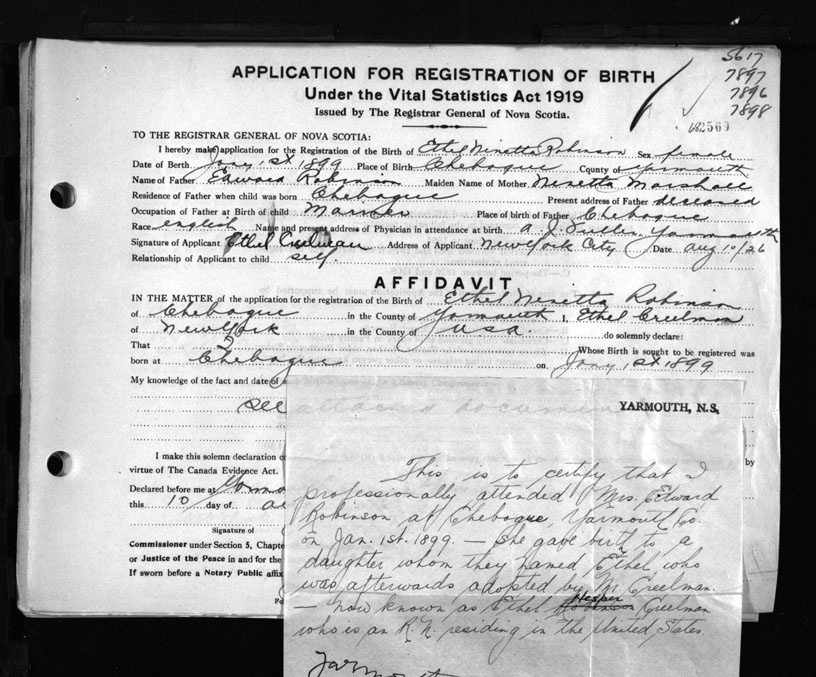 5617
7897
7896
7898
APPLICATION FOR REGISTRATION OF BIRTH
Under the Vital Statistics Act 1919
Issued by The Registrar General of Nova Scotia.
TO THE REGISTRAR GENERAL OF NOVA SCOTIA:
I hereby make application for the Registration of the Birth of Ethel Ninetta Robinson Sex female
Date of Birth Jany 1st 1899 Place of Birth Chebogue County of Yarmouth
Name of Father Edward Robinson Maiden Name of Mother Ninetta Marshall
Residence of Father when child was born Chebogue Present address of Father deceased
Occupation of Father at Birth of child Mariner Place of birth of Father Chebogue
Race english Name and present address of Physician in attendance at birth a. J. Fuller Yarmouth
Signature of Applicant Ethel Creelman Address of Applicant New York City Date aug 10/26
Relationship of Applicant to child self.
AFFIDAVIT
IN THE MATTER of the application for the registration of the Birth of Ethel Ninetta Robinson
of Chebogue in the County of Yarmouth I, Ethel Creelman
of New York in the County of U.S.a. do solemnly declare:
That I Whose Birth is sought to be registered was
born at Chebogue on Jany 1st 1899
My knowledge of the fact and date of
see attached document
YARMOUTH, N.S.
I make this solemn declaration
by
virtue of The Canada Evidence Act.
Declared before me at
this 10 day of
Signature of
Commissioner under Section 5, Chapte
or Justice of the Peace in and for the
If sworn before a Notary Public affix
This is to certify that I
professionally attended Mrs. Edward
Robinson at Chebogue, Yarmouth Co.
on Jan. 1st. 1899. — She gave birth to a
daughter whom they named Ethel who
was afterwards adopted by Mr. Creelman.
— now known as Ethel Hesper Creelman
who is an R.N. residing in the United States.